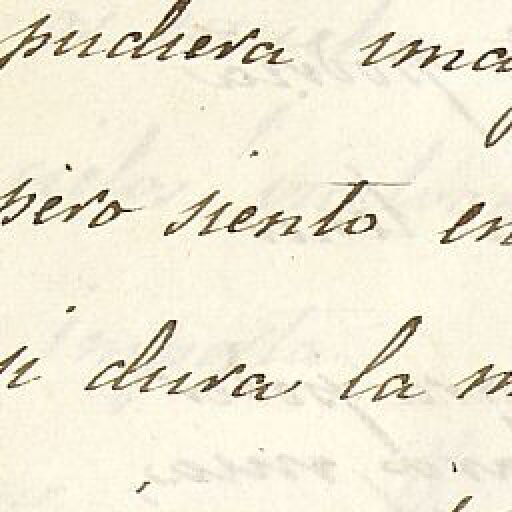 pudiera ima
pero siento en
si dura la m